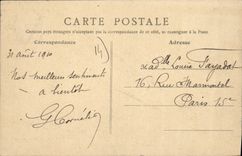 CARTE POSTALE
Certains pays étrangers n'acceptant pas la correspondance de ce côté, se renseigner à la Poste
Correspondance
Adresse
31 août 1910
Nos meilleurs sentiments
à bientôt
Louise
16, Rue Marmontel
Paris 15e